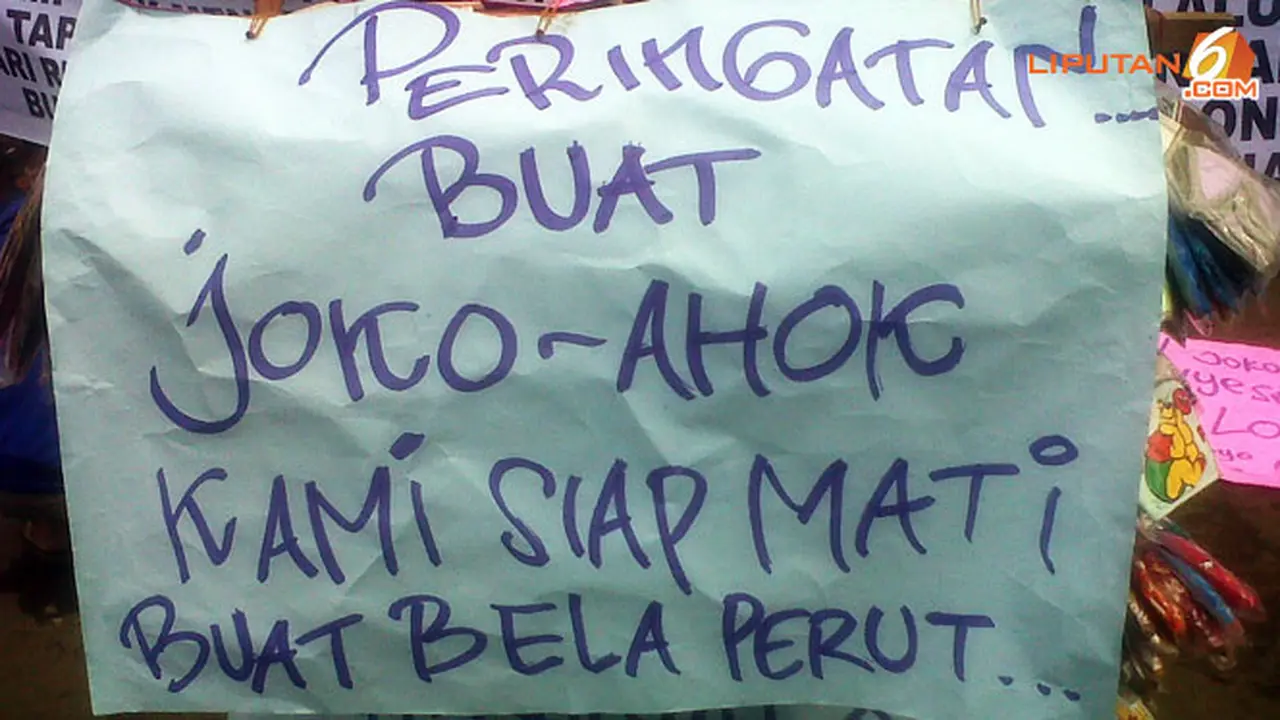 PERINGATAN...
BUAT
JOKO-AHOK
KAMI SIAP MATI
BUAT BELA PERUT...
LIPUTAN 6
.COM
TAP
BU
ON
JOKO
yes
LO